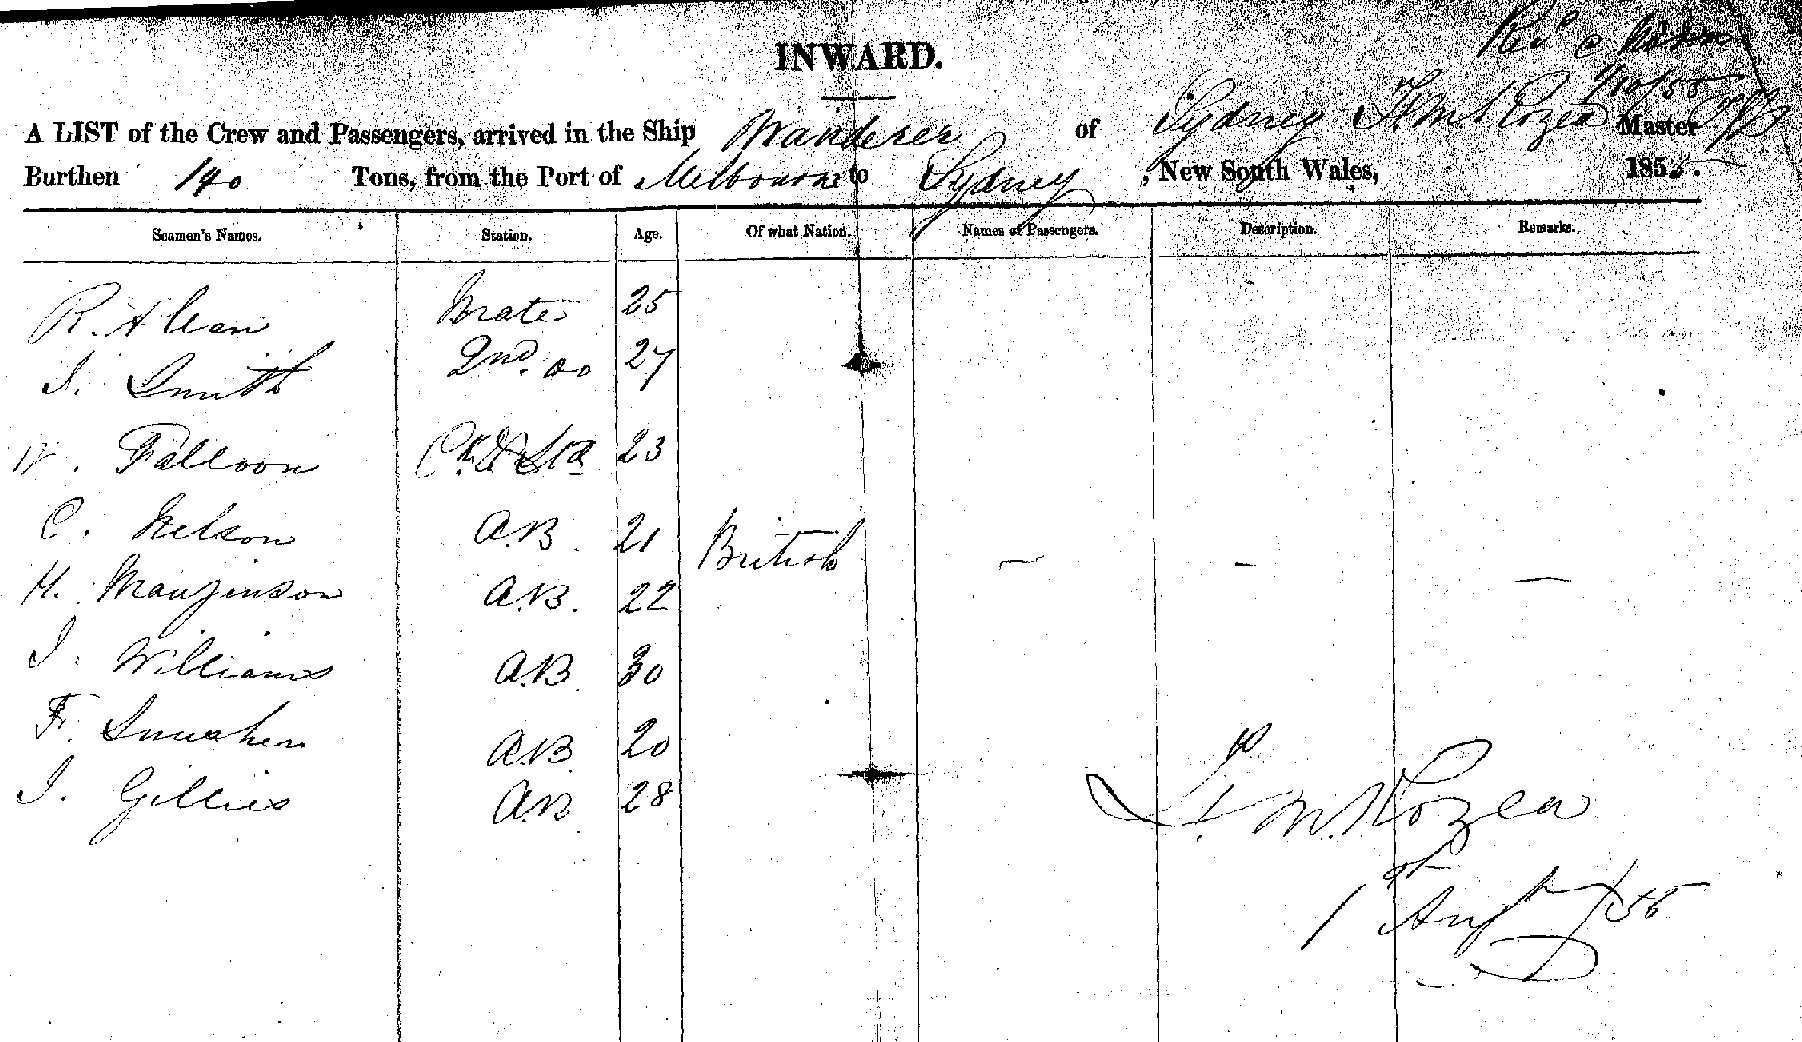 INWARD.
A LIST of the Crew and Passengers, arrived in the Ship Wanderer of Sydney Master
Burthen 140 Tons, from the Port of Melbourne to Sydney, New South Wales, 1855.
Seamen's Names. Station. Age. Of what Nation. Names of Passengers. Description. Remarks.
R. Mate 25
J. Smith 2nd. do 27
W. Falloon 23
C. Nelson A.B. 21 British — — —
H. A.B. 22
J. Williams A.B. 30
F. A.B. 20
J. Gillies A.B. 28
1st Augt /55